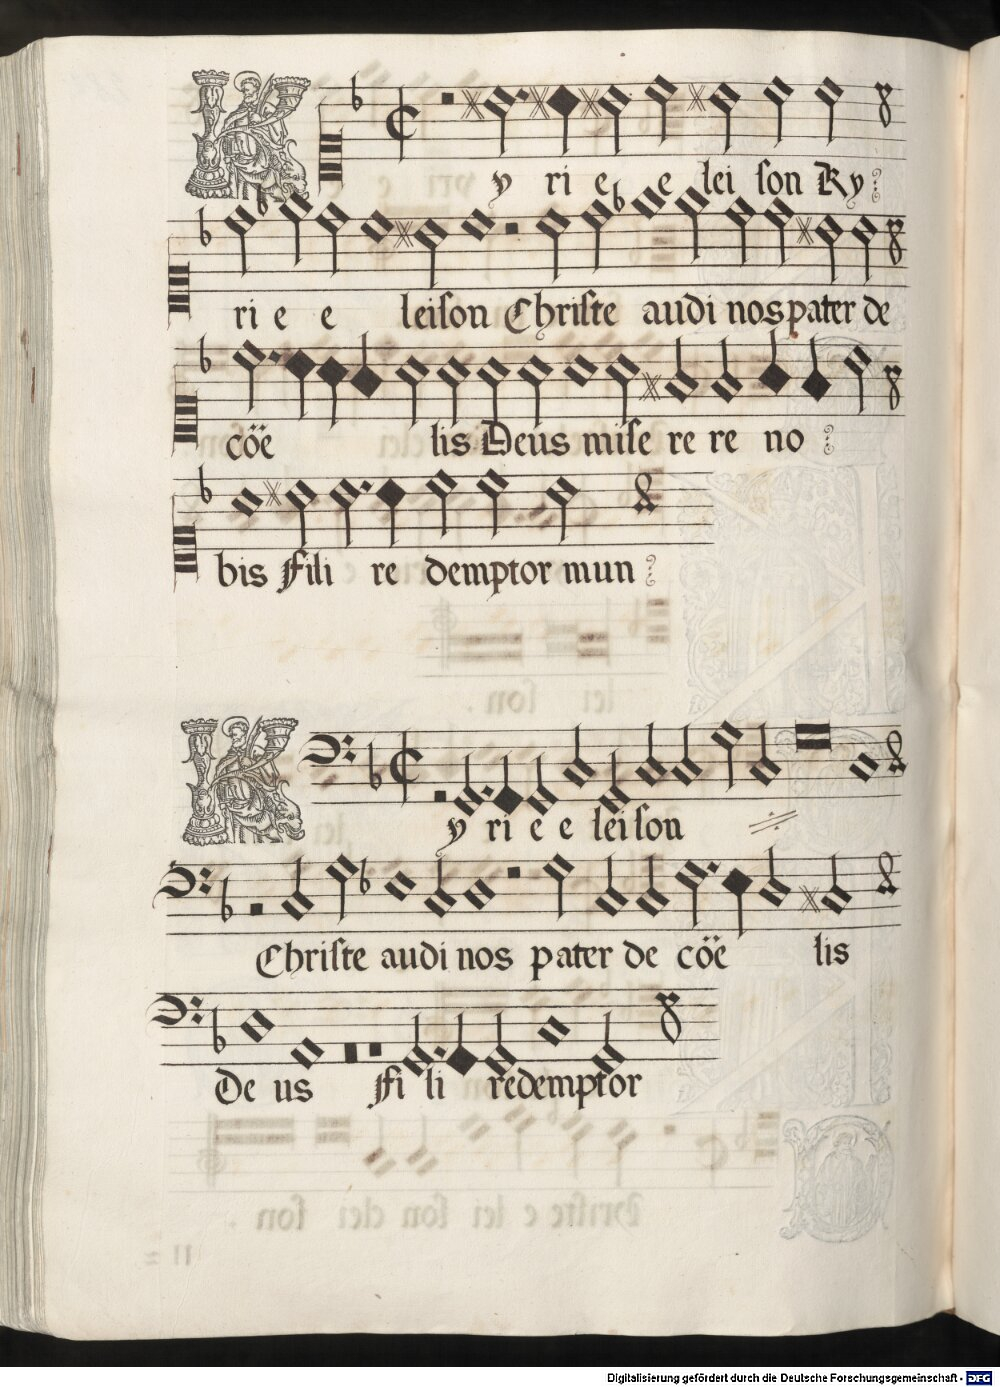 K y ri e e lei ſon Ky
ri e e leiſon Chriſte audi nos pater de
cöë lis Deus miſe re re no
bis Fili re demptor mun
K y ri e e leiſon
Chriſte audi nos pater de cöë lis
De us Fi li redemptor
Digitalisierung gefördert durch die Deutsche Forschungsgemeinschaft - DFG